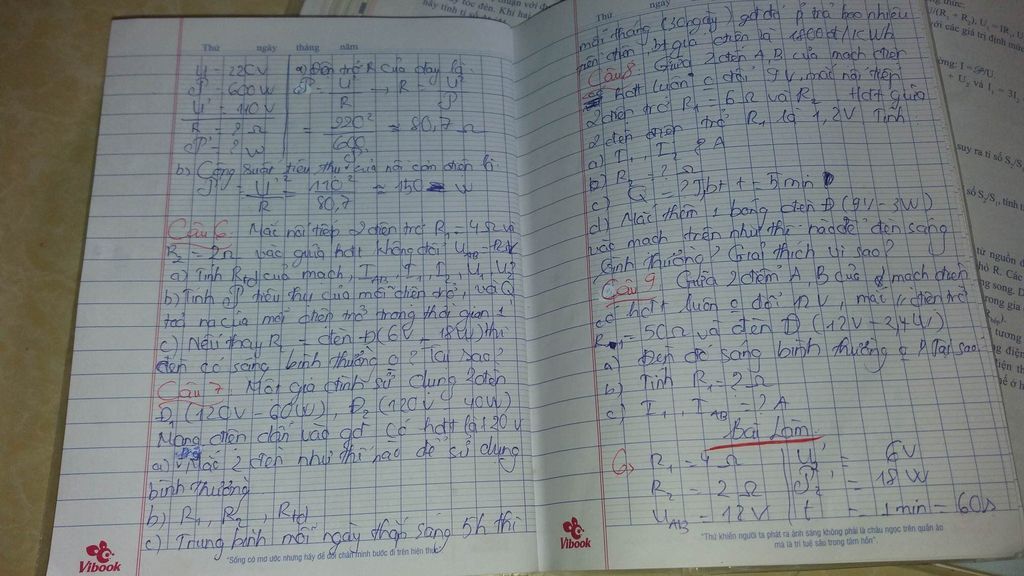 Thứ ngày tháng năm
U = 220V
P = 600W
U' = 110V
R = ? Ω
P' = ? W
a) Điện trở R của dây là
P = U²/R → R = U²/P
= 220²/600 ≈ 80,7 Ω
b) Công suất tiêu thụ của nồi cơm điện là
P' = U'²/R = 110²/80,7 ≈ 150 W
Câu 6 Mắc nối tiếp 2 điện trở R₁ = 4Ω và
R₂ = 2Ω vào giữa hđt không đổi U_AB = 12V
a) Tính Rtđ của mạch, I_AB, I₁, I₂, U₁, U₂?
b) Tính P tiêu thụ của mỗi điện trở, và Q
toả ra của mỗi điện trở trong thời gian 1
c) Nếu thay R₂ = đèn Đ (6V - 18W) thì
đèn có sáng bình thường o? Tại sao?
Câu 7 Một gia đình sử dụng 2 đèn
Đ₁ (120V - 60W), Đ₂ (120V - 40W)
Mạng điện dẫn vào gđ có hđt là 120V
a) Mắc 2 đèn như thế nào để sử dụng
bình thường
b) R₁, R₂, Rtđ
c) Trung bình mỗi ngày thắp sáng 5h thì
Vibook
"Sống có mơ ước nhưng hãy để đôi chân mình bước đi trên hiện thực"
Thứ ngày
mỗi tháng (30 ngày) gđ đó p trả bao nhiêu
tiền điện, bt giá điện là 1800đ/1kWh
Câu 8 Giữa 2 điểm A, B của mạch điện
hđt luôn o đổi 9V, mắc nối tiếp
2 điện trở R₁ = 6Ω và R₂. Hđt giữa
2 đầu điện trở R₁ là 1,2V. Tính
a) I₁, I₂ = ? A
b) R₂ = ? Ω
c) Q = ? J, bt t = 5 min
d) Mắc thêm 1 bóng đèn Đ (9V - 3W)
vào mạch trên như thế nào để đèn sáng
bình thường? Giải thích vì sao?
Câu 9 Giữa 2 điểm A, B của mạch điện
có hđt luôn o đổi 12V, mắc // điện trở
R₁ = 50Ω và đèn Đ (12V - 2,4W)
a) Đèn Đ sáng bình thường o? Tại sao
b) Tính R₂ = ? Ω
c) I₁, I_AB = ? A
Bài làm
6) R₁ = 4 Ω
R₂ = 2 Ω
U_AB = 12V
U₂' = 6V
P₂' = 18W
t = 1 min = 60s
"Thứ khiến người ta phát ra ánh sáng không phải là châu ngọc trên quần áo
mà là trí tuệ sâu trong tâm hồn".
Vibook